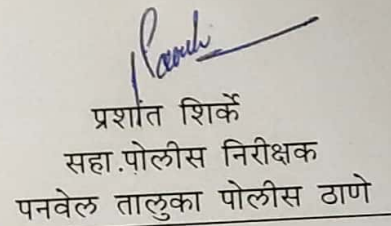 प्रशांत शिर्के
सहा.पोलीस निरीक्षक
पनवेल तालुका पोलीस ठाणे